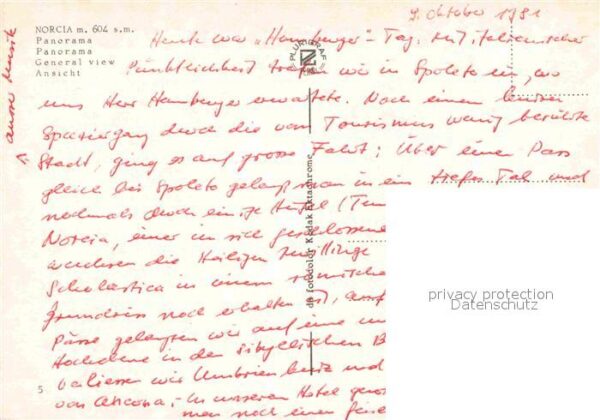 NORCIA m. 604 s.m.
Panorama
Panorama
General view
Ansicht
9. Oktober 1981
Heute war „Hamburger"-Tag. Mit italienischer
Pünktlichkeit trafen wir in Spoleto ein, wo
uns Herr Hamburger erwartete. Nach einem kurzen
Spaziergang durch die vom Tourismus wenig berührte
Stadt, ging es auf grosse Fahrt: Über einen Pass
gleich bei Spoleto gelangt man in ein tiefes Tal und
nochmals durch einige
Norcia, einer in sich geschlossene
wuchsen die Heiligen Zwillinge
Scholastica in einem römische
Grundriss noch erhalten ist, auf
Pässe gelangten wir auf eine
Hochebene in den sibyllischen B
verliessen wir Umbrien und
von Ancona. In unserem Hotel
man noch einen
ausser Musik
PLURIGRAF
da fotocolor Kodak Ektachrome
5
privacy protection
Datenschutz